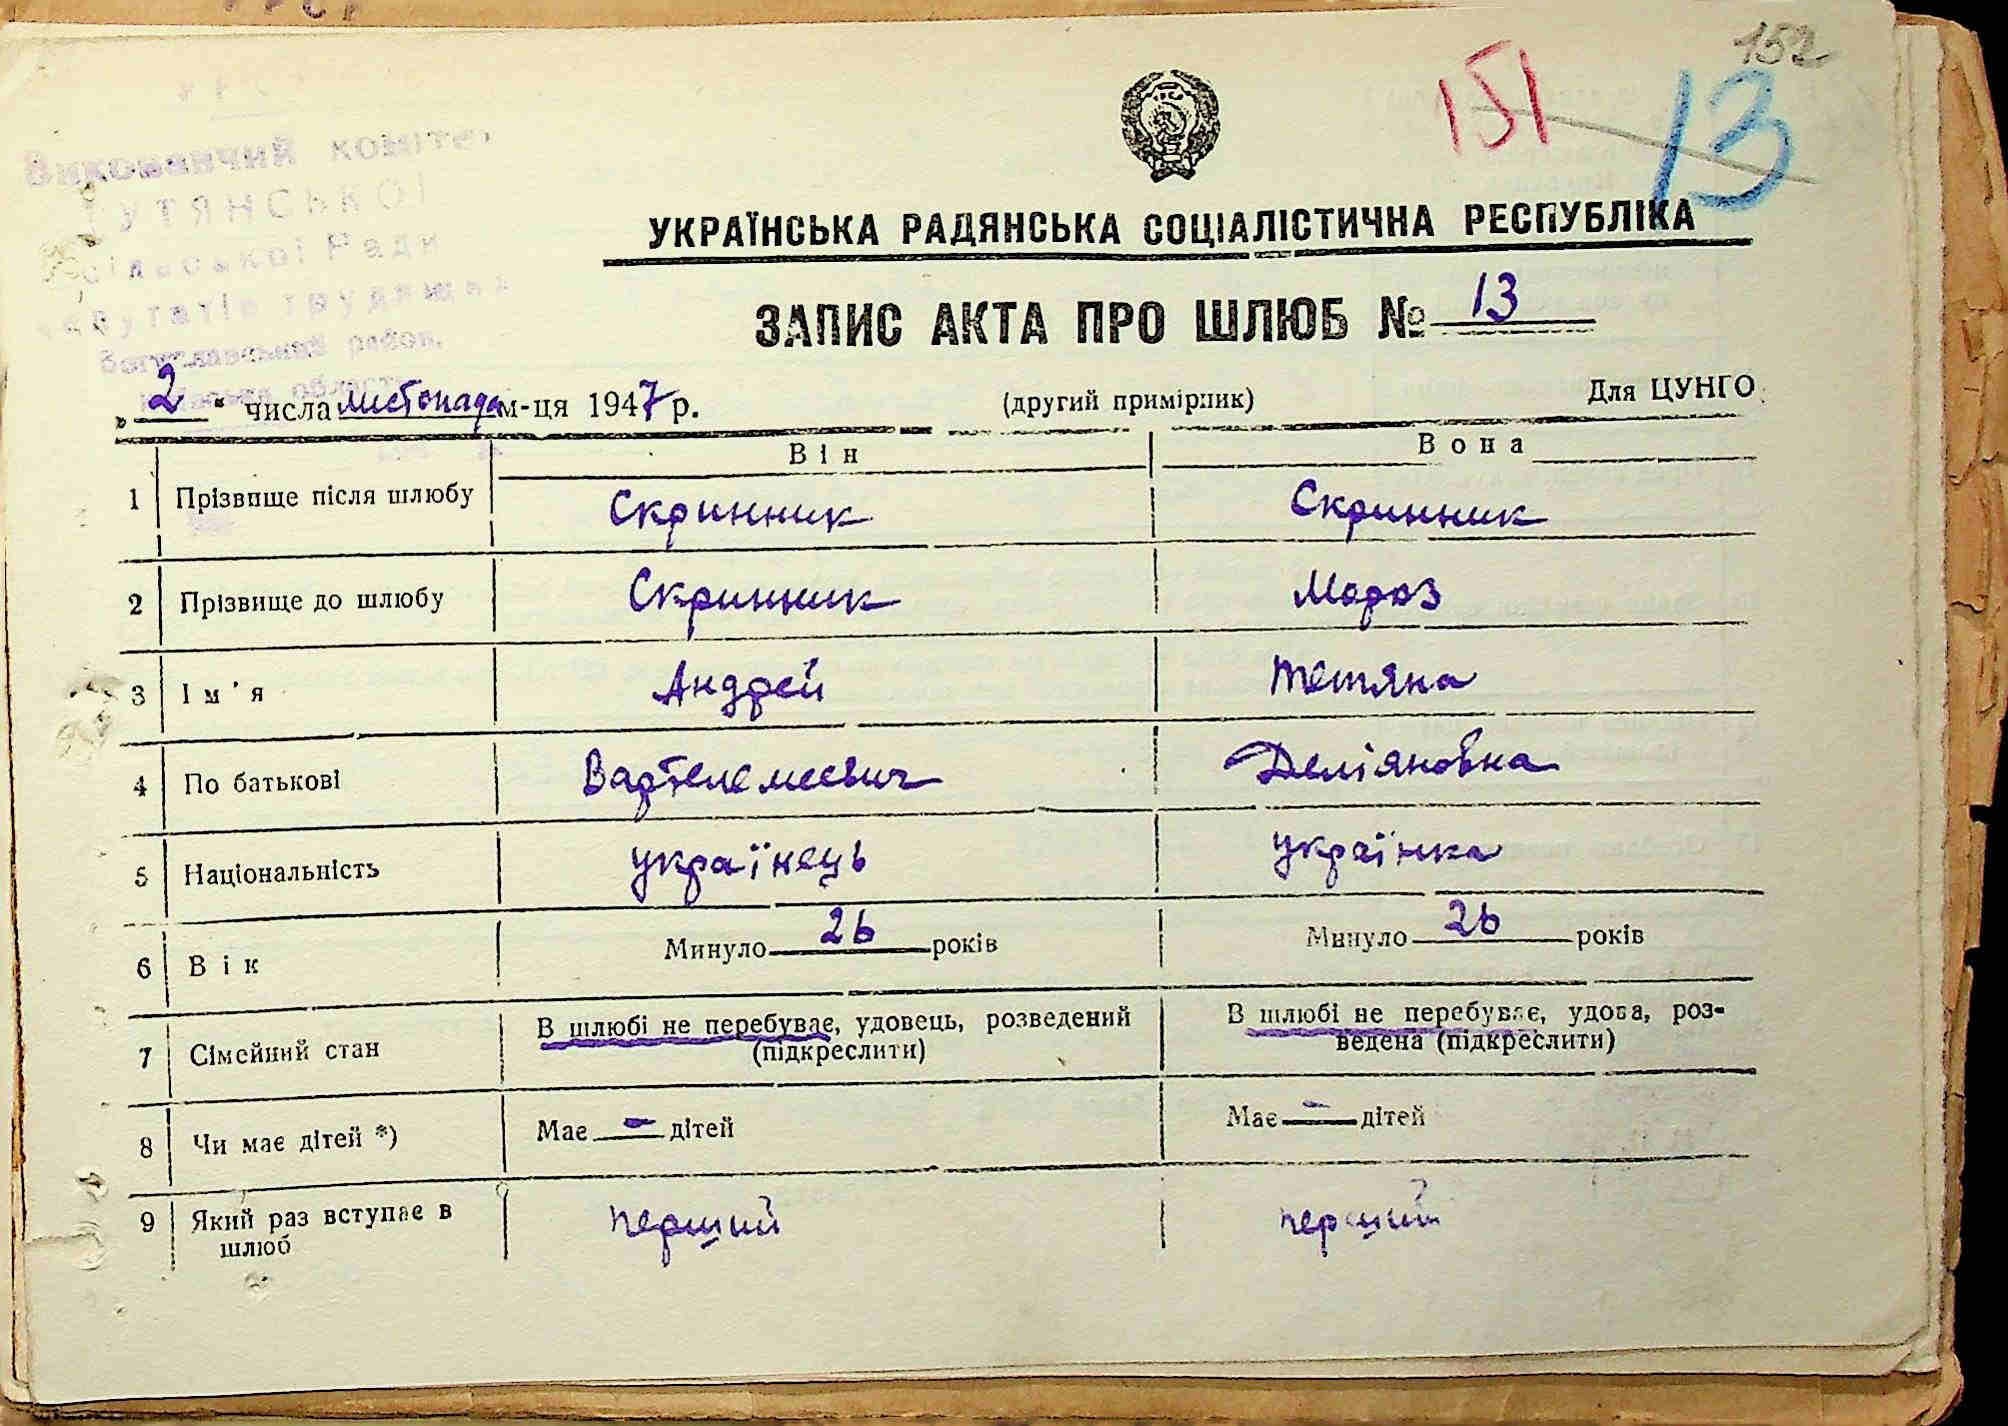 152
151
13
УРСР
Виконавчий комітет
ТУТЯНСЬКОЇ
сільської Ради
депутатів трудящих
Богуславський район,
УКРАЇНСЬКА РАДЯНСЬКА СОЦІАЛІСТИЧНА РЕСПУБЛІКА
ЗАПИС АКТА ПРО ШЛЮБ № 13
„ 2 “ числа листопада м-ця 1947 р. (другий примірник) Для ЦУНГО
Він Вона
1 Прізвище після шлюбу Скринник Скринник
2 Прізвище до шлюбу Скринник Мороз
3 Ім'я Андрей Тетяна
4 По батькові Вартелемеевич Деміяновна
5 Національність українець українка
6 Вік Минуло 26 років Минуло 26 років
7 Сімейний стан В шлюбі не перебуває, удовець, розведений (підкреслити) В шлюбі не перебуває, удова, роз-
ведена (підкреслити)
8 Чи має дітей *) Має - дітей Має - дітей
9 Який раз вступає в перший перший
шлюб